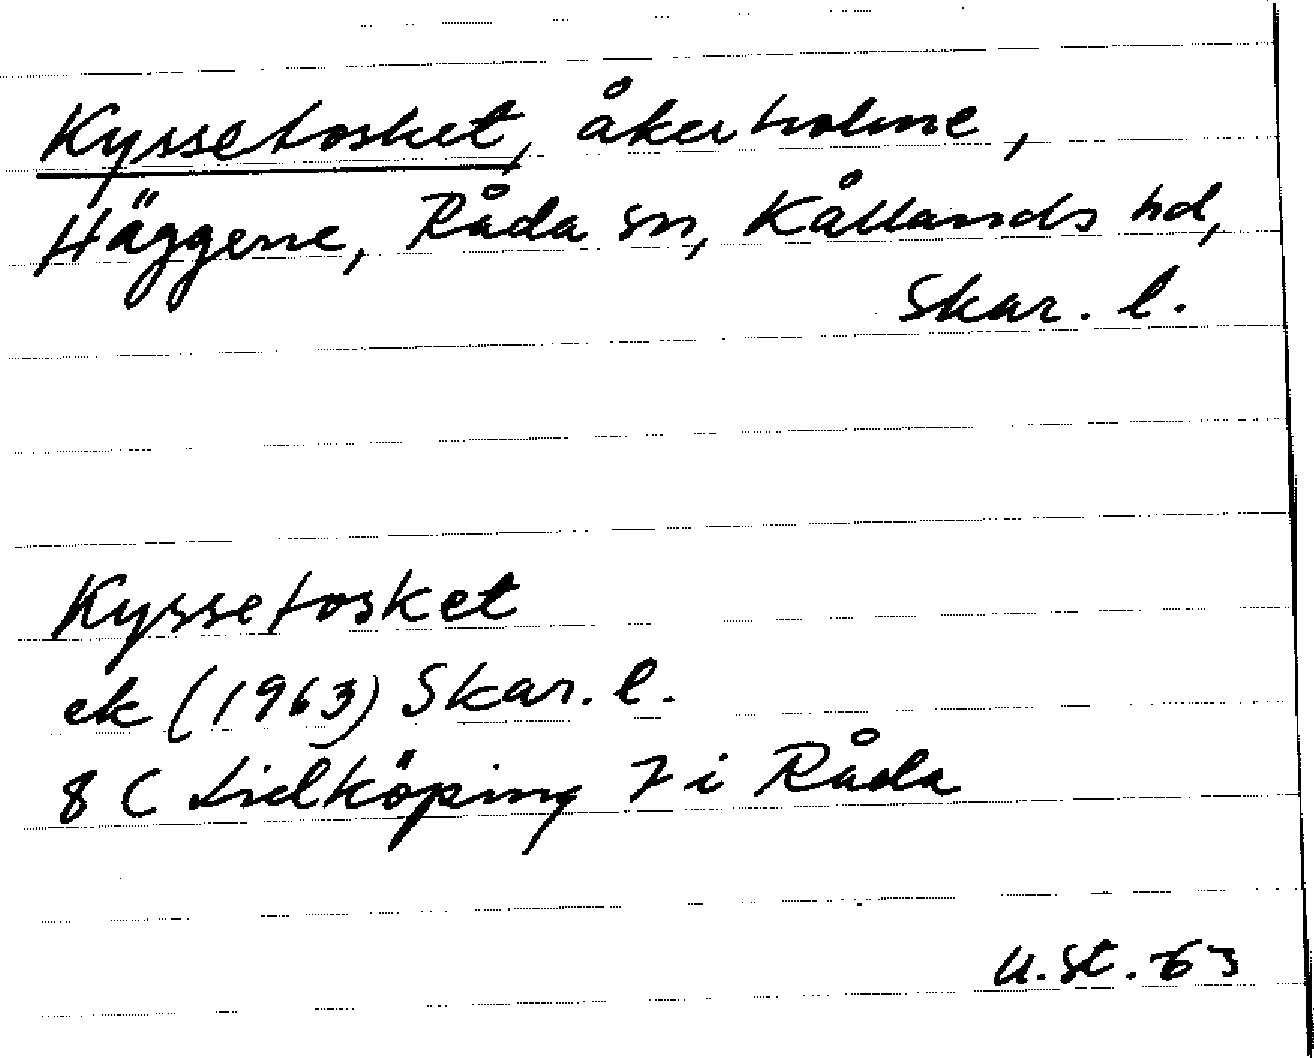 Kyssetosket, åkerholme,
Häggene, Råda sn, Kållands hd,
Skar. l.
Kyssetosket
ek (1963) Skar. l.
8 C Lidköping 7 i Råda
U. St. 63